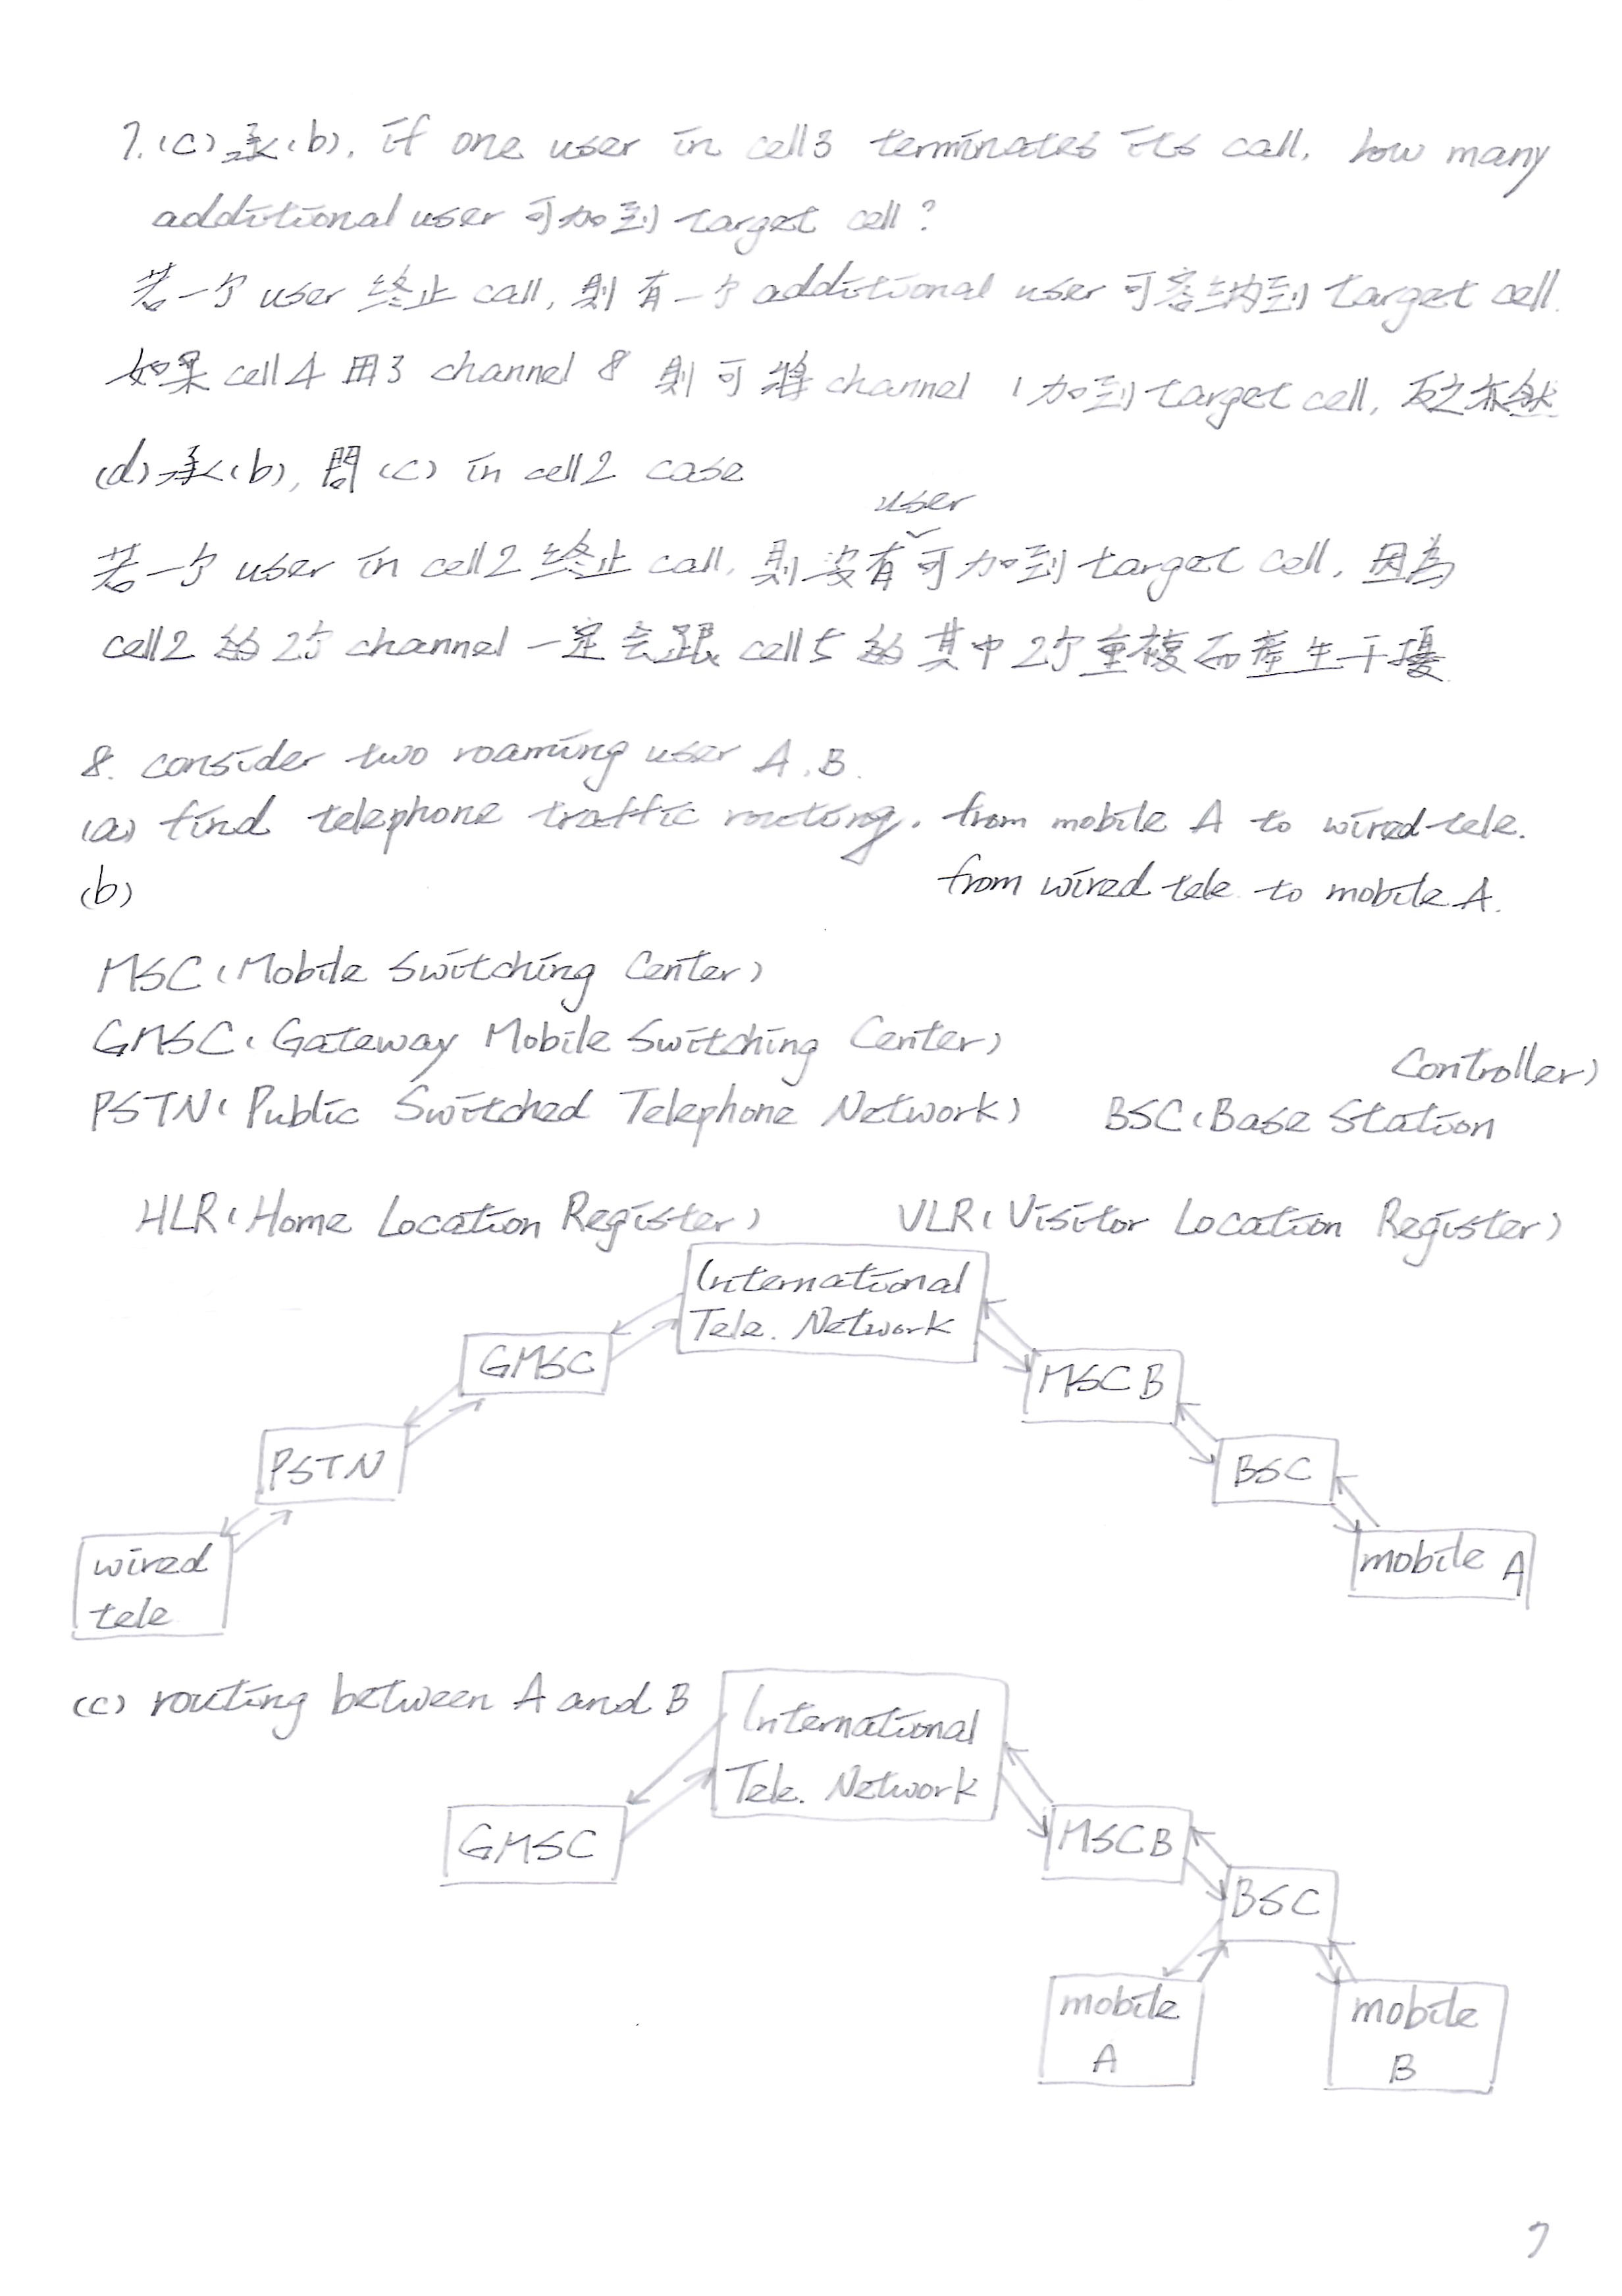 7.(c)承(b), if one user in cell3 terminates its call, how many
additional user 可加到 target cell?
若一个 user 終止 call, 則有一个 additional user 可容納到 target cell.
如果 cell 4 用了 channel 8 則可將 channel 1 加到 target cell, 反之亦然
(d)承(b), 問(c) in cell2 case
若一个 user in cell2 終止 call, 則沒有 user 可加到 target cell, 因為
cell2 的 2个 channel 一定会跟 cell 5 的其中 2个重複而產生干擾
8. consider two roaming user A, B.
(a) find telephone traffic routing. from mobile A to wired tele.
(b) from wired tele to mobile A.
MSC (Mobile Switching Center)
GMSC (Gateway Mobile Switching Center)
PSTN (Public Switched Telephone Network) BSC (Base Station Controller)
HLR (Home Location Register) VLR (Visitor Location Register)
International
Tele. Network
GMSC
MSC B
PSTN
BSC
wired
tele
mobile A
(c) routing between A and B
International
Tele. Network
GMSC
MSCB
BSC
mobile
A
mobile
B
7